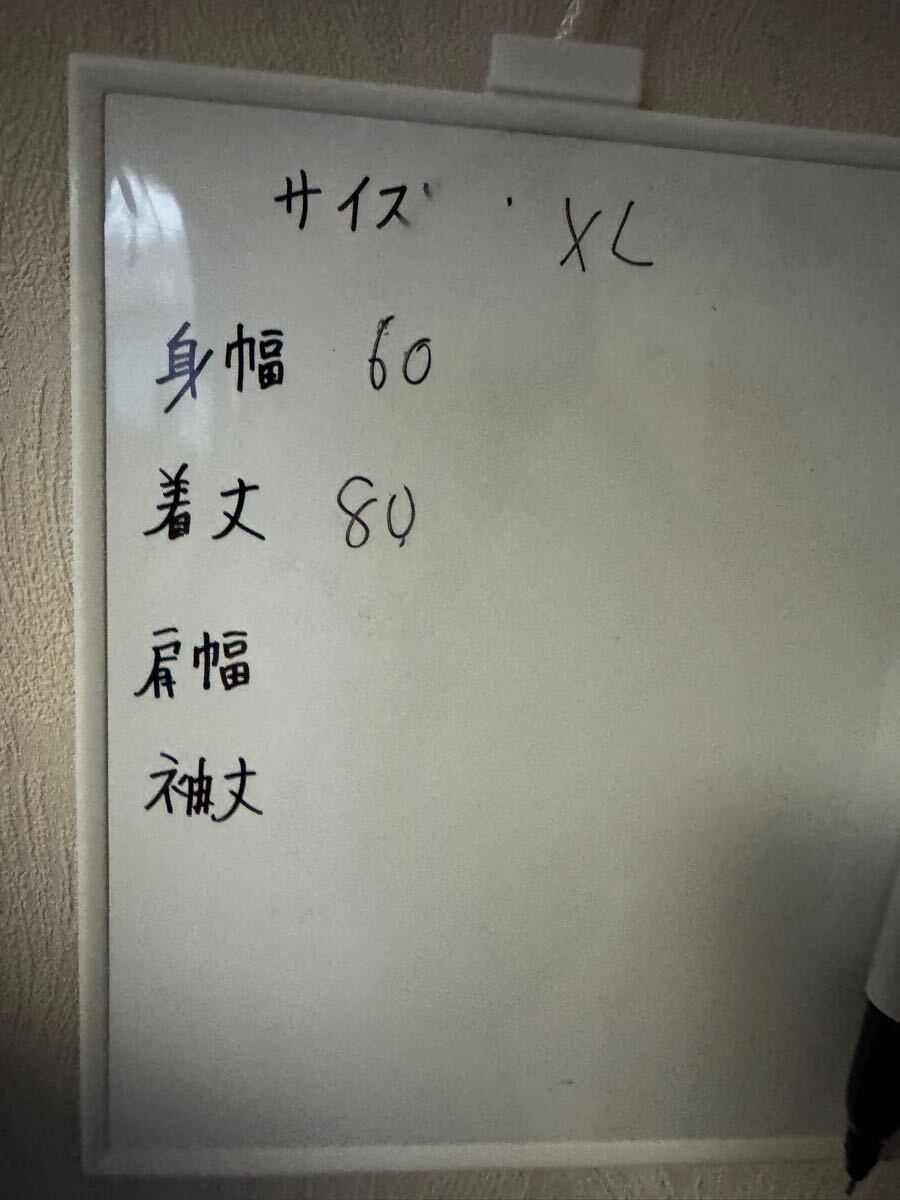 サイズ ・ XL
身幅 60
着丈 80
肩幅
袖丈